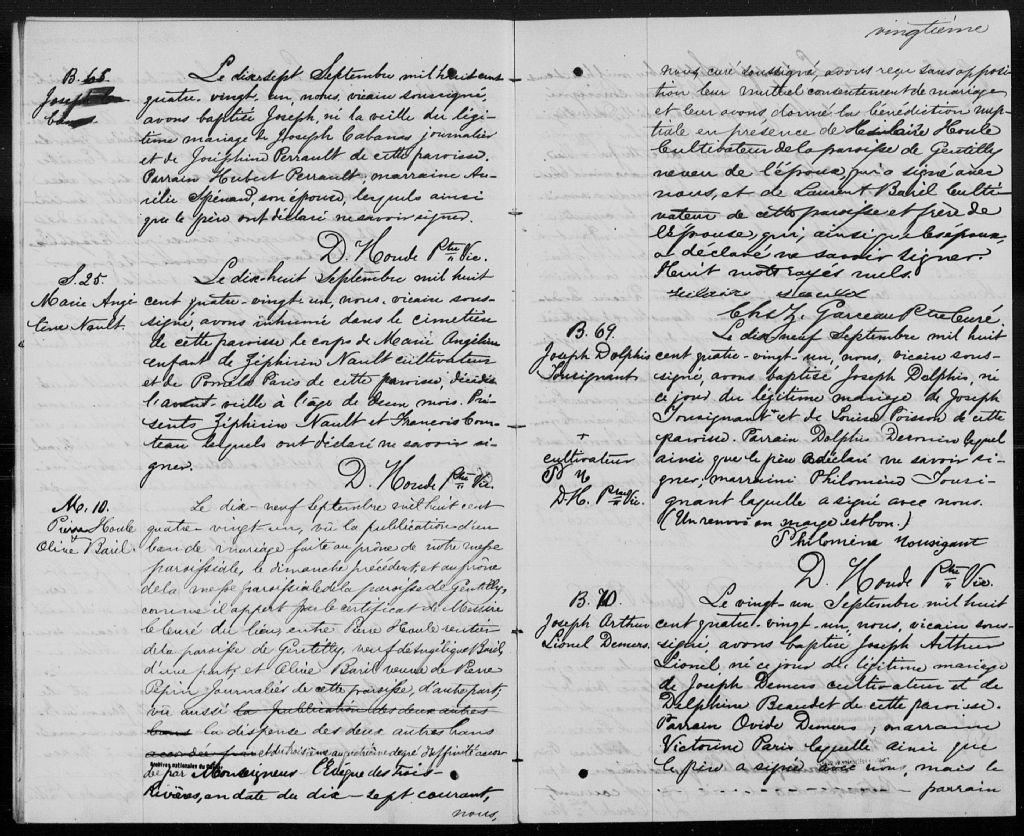 B. 68.
Joseph
Le dix-sept Septembre mil huit cent
quatre-vingt-un, nous, vicaire soussigné,
avons baptisé Joseph, né la veille du légi-
time mariage de Joseph Cabanas, journalier
et de Josephine Perrault de cette paroisse.
Parrain Hubert Perrault, marraine Au-
rélie Spénard, son épouse, lesquels ainsi
que le père ont déclaré ne savoir signer.
D. Houde Ptre Vic.
S. 25.
Marie Angé-
line Nault.
Le dix-huit Septembre mil huit
cent quatre-vingt-un, nous, vicaire sous-
signé, avons inhumé dans le cimetière
de cette paroisse le corps de Marie Angéline
enfant de Zéphirin Nault cultivateur
et de Paméla Paris de cette paroisse, décédée
l'avant-veille à l'âge de deux mois. Pré-
sents Zéphirin Nault et François
lesquels ont déclaré ne savoir si-
gner.
D. Houde Ptre Vic.
M. 10.
Pierre Houle
&
Olive Baril.
Le dix-neuf septembre mil huit cent
quatre-vingt-un, vû la publication d'un
ban de mariage faite au prône de notre messe
paroissiale, le dimanche précédent, et au prône
de la messe paroissiale de la paroisse de Gentilly,
comme il appert par le certificat de Messire
le Curé du lieu; entre Pierre Houle rentier
de la paroisse de Gentilly, veuf de Angélique Baril,
d'une part; et Olive Baril veuve de Pierre
Pepin journalier de cette paroisse, d'autre part;
vu aussi la publication des deux autres
bans la dispense des deux autres bans
accordée par et du troisième au quatrième degré d'affinité accor
dée par Monseigneur l'Evêque des Trois-
Rivières, en date du dix-sept courant,
nous,
Archives nationales du Québec
vingtième
nous, curé soussigné, avons reçu sans opposi
tion leur mutuel consentement de mariage
et leur avons donné la bénédiction nup-
tiale en présence de Hilaire Houle
Cultivateur de la paroisse de Gentilly
neveu de l'époux, qui a signé avec
nous, et de Laurent Baril Culti-
vateur de cette paroisse et frère de
l'épouse, qui, ainsi que les époux,
a déclaré ne savoir signer.
Huit mots rayés nuls.
Chs Z. Garceau Ptre Curé
B. 69.
Joseph Dolphis
Tousignant
+
cultivateur
P N
D.H. Ptre Vic.
Le dix-neuf Septembre mil huit
cent quatre-vingt-un, nous, vicaire sous-
signé, avons baptisé Joseph Dolphis, né
ce jour du légitime mariage de Joseph
Tousignant + et de Louise Poisson de cette
paroisse. Parrain Dolphis lequel
ainsi que le père a déclaré ne savoir si-
gner; marraine Philomène Tousi-
gnant laquelle a signé avec nous.
(Un renvoi en marge est bon.)
Philomène
D. Houde Ptre Vic.
B. 70.
Joseph Arthur
Lionel Demers.
Le vingt-un Septembre mil huit
cent quatre-vingt-un, nous, vicaire sous-
signé, avons baptisé Joseph Arthur
Lionel né ce jour du légitime mariage
de Joseph Demers cultivateur et de
Delphine Beaudet de cette paroisse.
Parrain Ovide Demers; marraine
Victorine Paris laquelle ainsi que
le père a signé avec nous, mais le
parrain